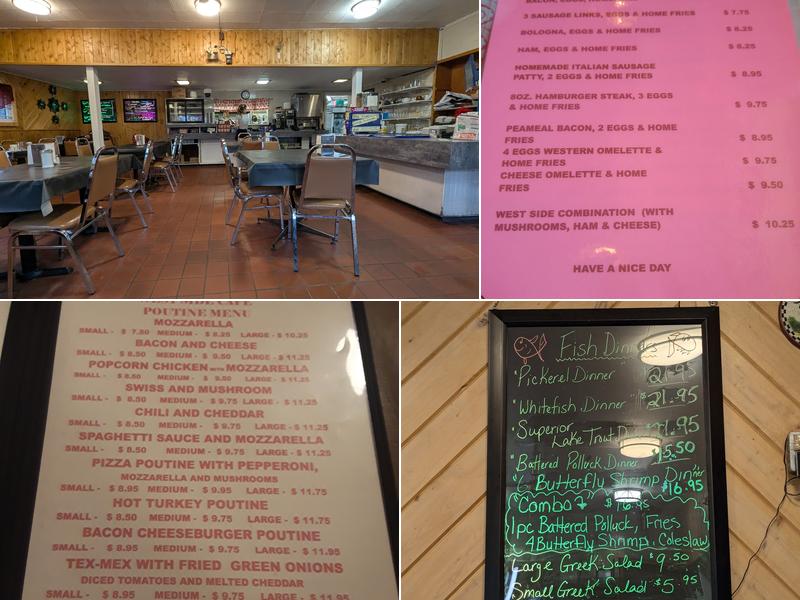 3 SAUSAGE LINKS, EGGS & HOME FRIES $ 7.75
BOLOGNA, EGGS & HOME FRIES $ 8.25
HAM, EGGS & HOME FRIES $ 8.25
HOMEMADE ITALIAN SAUSAGE
PATTY, 2 EGGS & HOME FRIES $ 8.95
8OZ. HAMBURGER STEAK, 3 EGGS
& HOME FRIES $ 9.75
PEAMEAL BACON, 2 EGGS & HOME
FRIES $ 8.95
4 EGGS WESTERN OMELETTE &
HOME FRIES $ 9.75
CHEESE OMELETTE & HOME
FRIES $ 9.50
WEST SIDE COMBINATION (WITH
MUSHROOMS, HAM & CHEESE) $ 10.25
HAVE A NICE DAY
WEST SIDE CAFE
POUTINE MENU
MOZZARELLA
SMALL - $ 7.50 MEDIUM - $ 8.25 LARGE - $ 10.25
BACON AND CHEESE
SMALL - $ 8.50 MEDIUM - $ 9.50 LARGE - $ 11.25
POPCORN CHICKEN WITH MOZZARELLA
SMALL - $ 8.50 MEDIUM - $ 9.50 LARGE - $ 11.25
SWISS AND MUSHROOM
SMALL - $ 8.50 MEDIUM - $ 9.75 LARGE - $ 11.25
CHILI AND CHEDDAR
SMALL - $ 8.50 MEDIUM - $ 9.75 LARGE - $ 11.25
SPAGHETTI SAUCE AND MOZZARELLA
SMALL - $ 8.50 MEDIUM - $ 9.75 LARGE - $ 11.25
PIZZA POUTINE WITH PEPPERONI,
MOZZARELLA AND MUSHROOMS
SMALL - $ 8.95 MEDIUM - $ 9.95 LARGE - $ 11.75
HOT TURKEY POUTINE
SMALL - $ 8.50 MEDIUM - $ 9.75 LARGE - $ 11.75
BACON CHEESEBURGER POUTINE
SMALL - $ 8.95 MEDIUM - $ 9.75 LARGE - $ 11.95
TEX-MEX WITH FRIED GREEN ONIONS
DICED TOMATOES AND MELTED CHEDDAR
SMALL - $ 8.95 MEDIUM - $ 9.75 LARGE - $ 11.95
Fish Dinners
"Pickerel Dinner" 21.95
"Whitefish Dinner" $21.95
"Superior
Lake Trout 21.95
"Battered Polluck Dinner 15.50
"6 Butterfly Shrimp Dinner
$16.95
Combo $16.95
1pc Battered Polluck, Fries
4 Butterfly Shrimp, Coleslaw
Large Greek Salad $9.50
Small Greek Salad $5.95